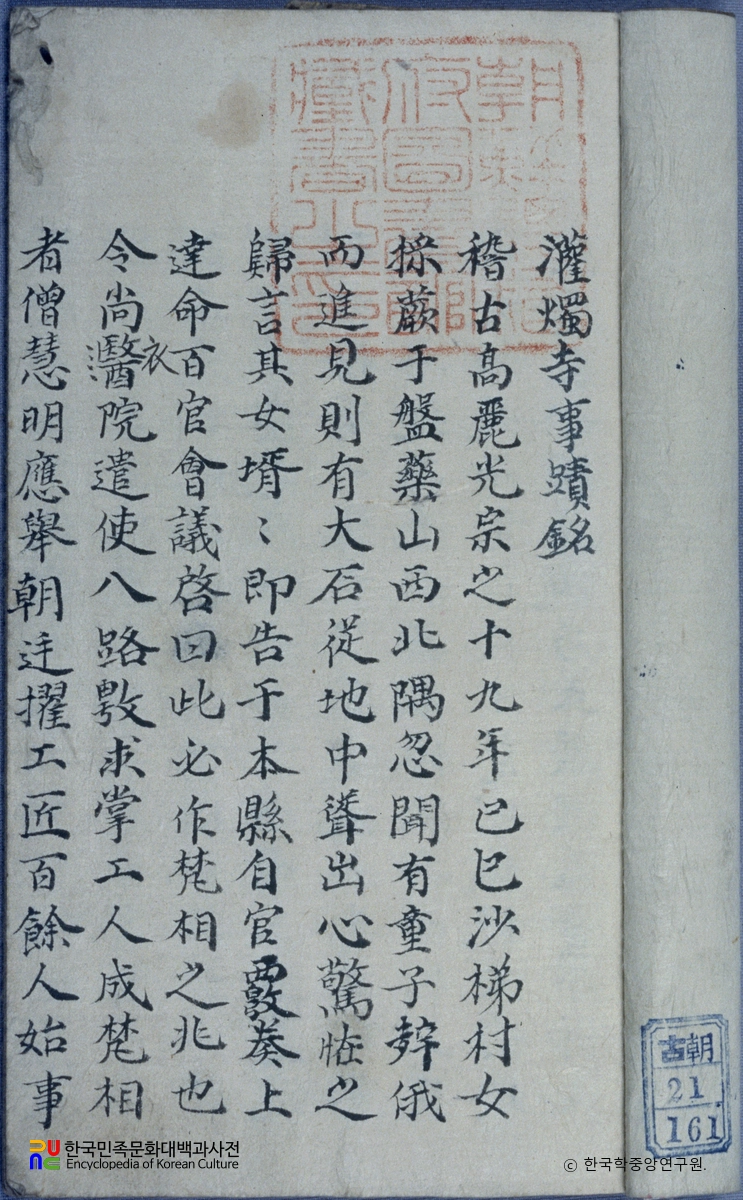 灌燭寺事蹟銘
稽古高麗光宗之十九年己巳沙梯村女
採蕨于盤藥山西北隅忽聞有童子聲俄
而進見則有大石從地中聳出心驚恠之
歸言其女壻〻即告于本縣自官覈奏上
達命百官會議啓曰此必作梵相之兆也
令尚醫衣院遣使八路敷求掌工人成梵相
者僧慧明應舉朝廷擢工匠百餘人始事
朝
古
21
161
한국민족문화대백과사전
Encyclopedia of Korean Culture
© 한국학중앙연구원.